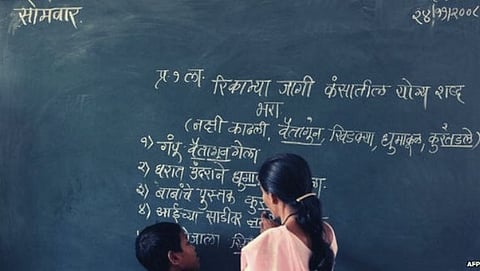 सोमवार
२४/११/२००८
प्र. १ ला.
रिकाम्या जागी कंसातील योग्य शब्द
भरा
(नक्षी काढली, वैतागून, खिडक्या, धुमाकूळ, कुरतडले)
१) गंपू वैतागून गेला
२) घरात उंदराने
३) बाबांचे पुस्तक
४) आईच्या साडीवर
AFP